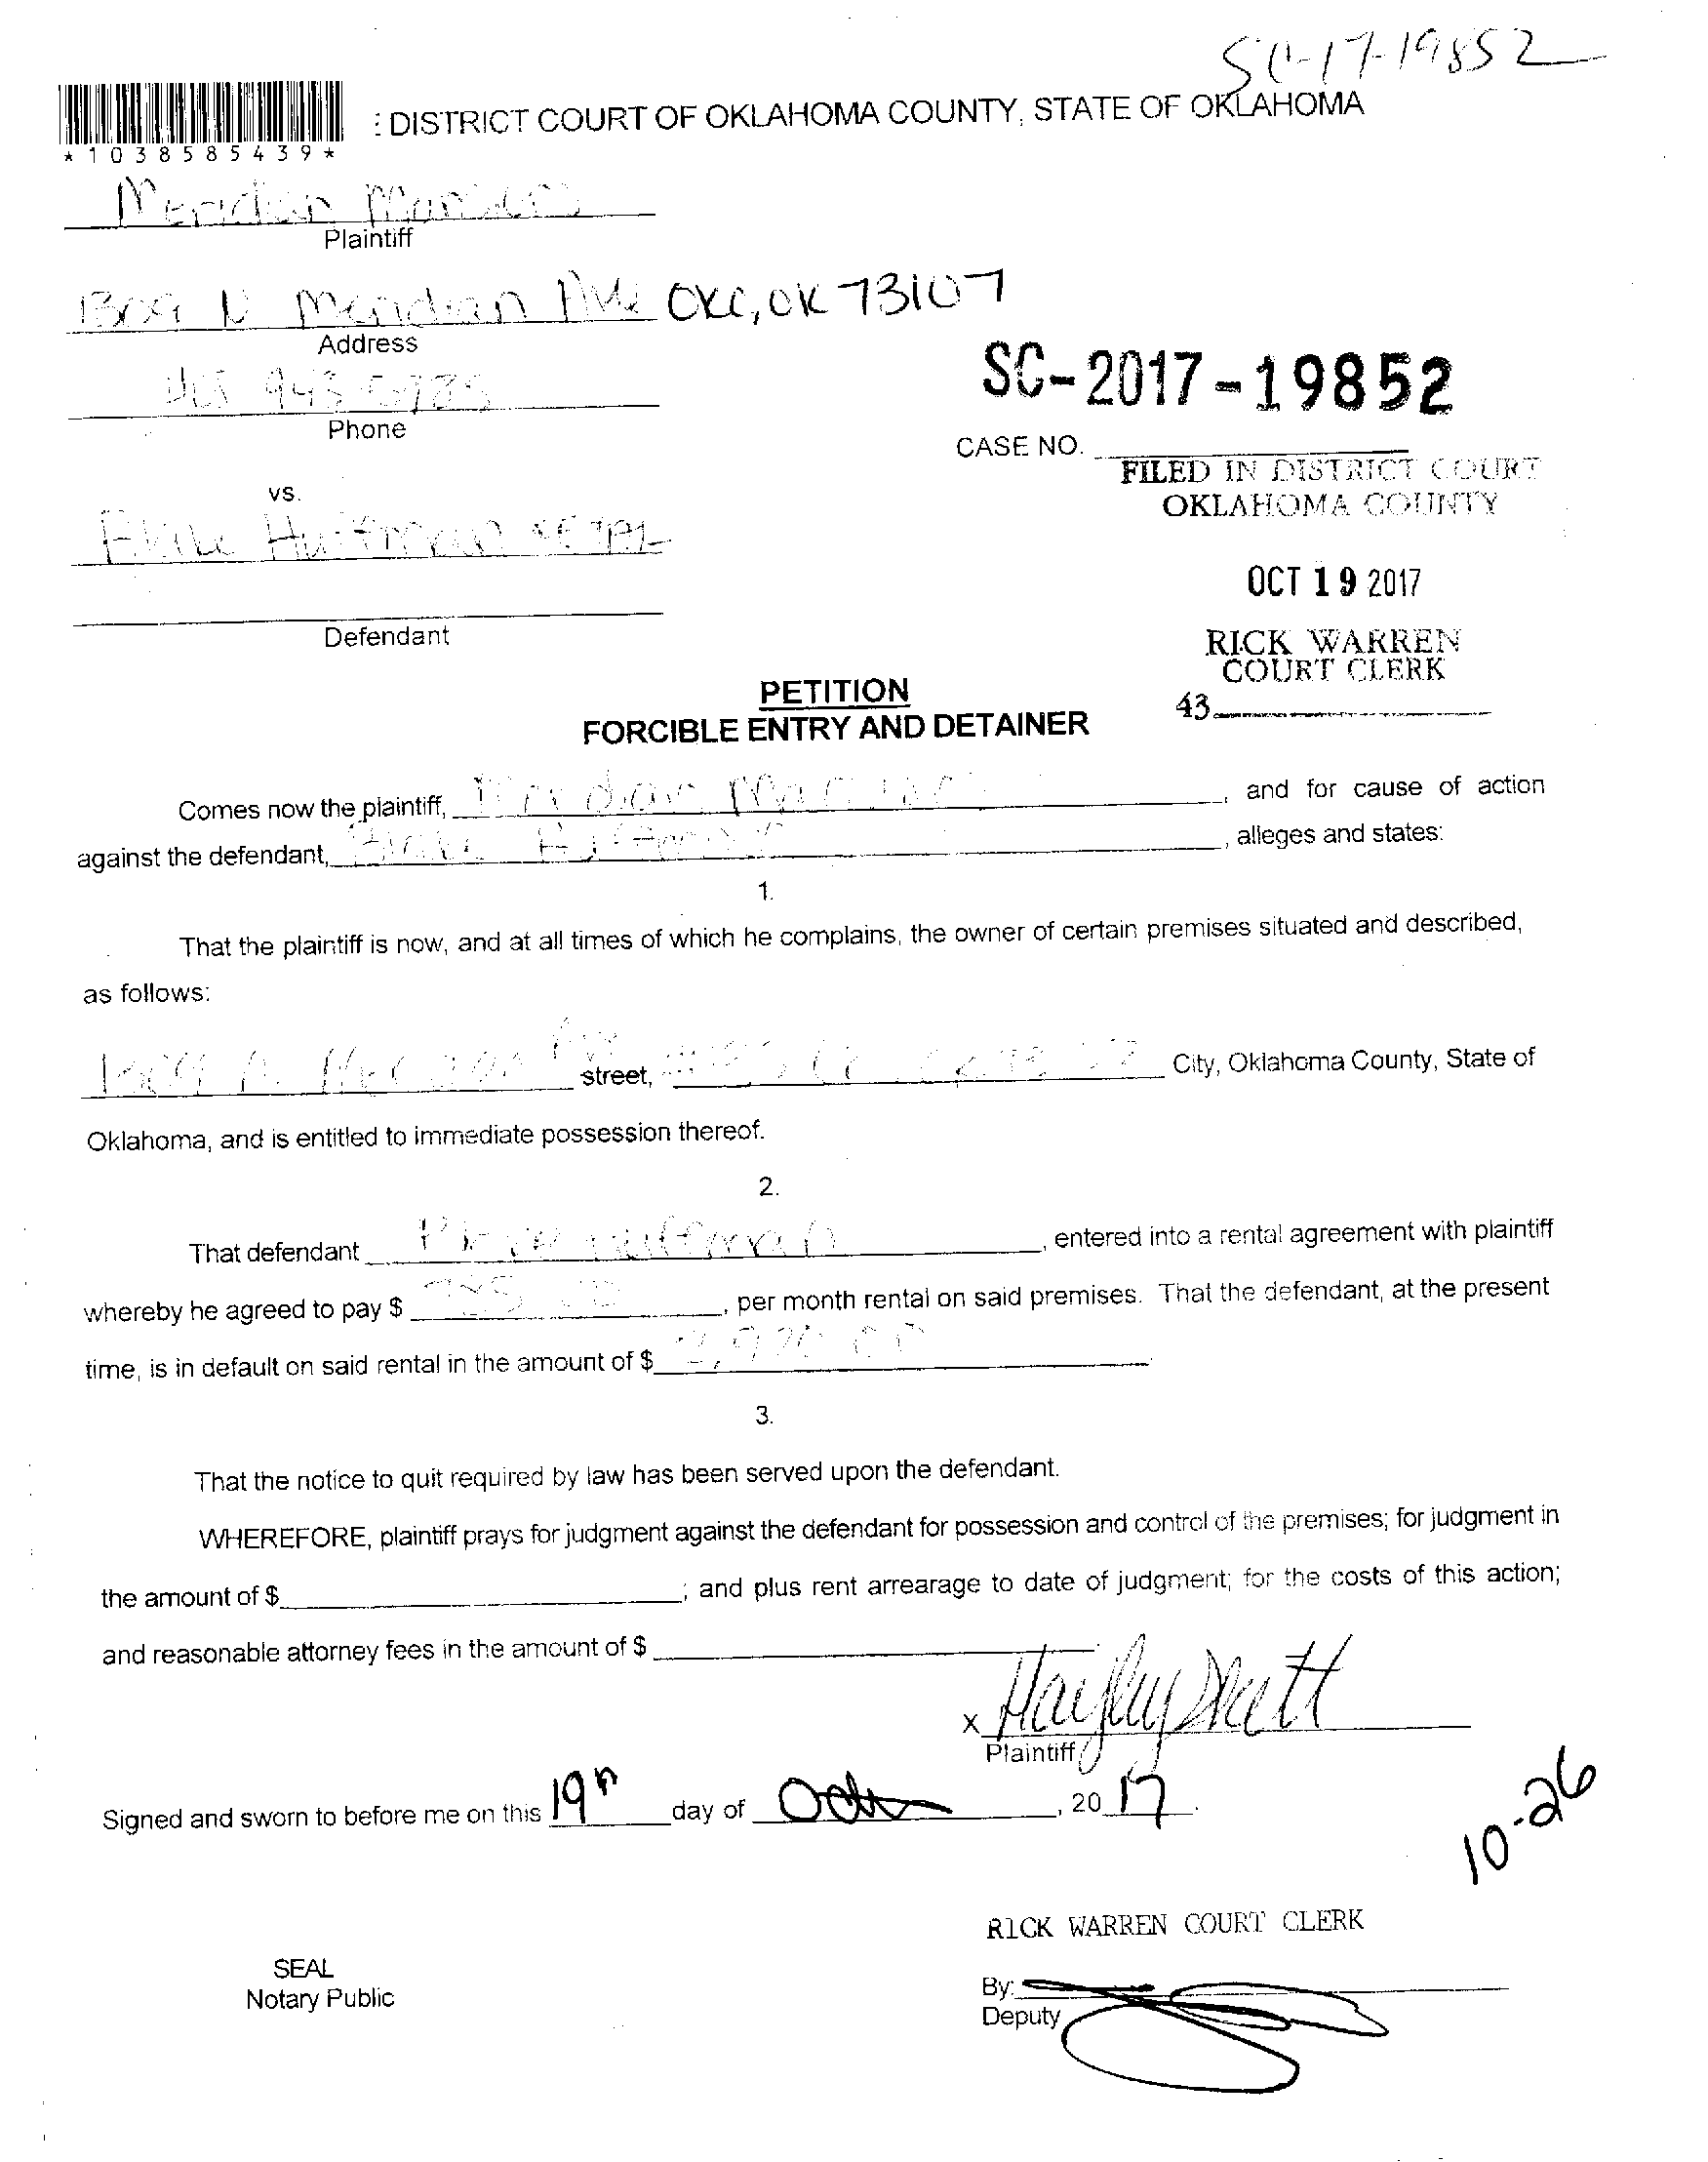 SC-17-19852
: DISTRICT COURT OF OKLAHOMA COUNTY, STATE OF OKLAHOMA
*1038585439*
Meridian Mansions
Plaintiff
1309 N Meridian Ave OKC, OK 73107
Address
405 943
Phone
SC-2017-19852
CASE NO.
FILED IN DISTRICT COURT
OKLAHOMA COUNTY
vs.
Huffman et al
OCT 19 2017
Defendant
RICK WARREN
COURT CLERK
43
PETITION
FORCIBLE ENTRY AND DETAINER
Comes now the plaintiff, Meridian Mansions, and for cause of action
against the defendant, Huffman, alleges and states:
1.
That the plaintiff is now, and at all times of which he complains, the owner of certain premises situated and described,
as follows:
N. street, City, Oklahoma County, State of
Oklahoma, and is entitled to immediate possession thereof.
2.
That defendant Huffman, entered into a rental agreement with plaintiff
whereby he agreed to pay $, per month rental on said premises. That the defendant, at the present
time, is in default on said rental in the amount of $
3.
That the notice to quit required by law has been served upon the defendant.
WHEREFORE, plaintiff prays for judgment against the defendant for possession and control of the premises; for judgment in
the amount of $; and plus rent arrearage to date of judgment; for the costs of this action;
and reasonable attorney fees in the amount of $
x
Plaintiff
Signed and sworn to before me on this 19th day of Oct, 2017.
10-26
RICK WARREN COURT CLERK
SEAL
Notary Public
By:
Deputy